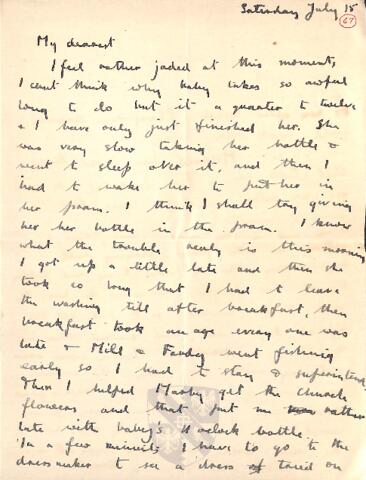 Saturday July 15
67
My dearest
I feel rather jaded at this moment,
I cant think why baby takes so awful
long to do but it a quarter to twelve
& I have only just finished her. She
was very slow taking her bottle &
went to sleep over it, and then I
had to wake her to put her in
her pram. I think I shall try giving
her her bottle in the pram. I know
what the trouble really is this morning
I got up a little late and then she
took so long that I had to leave
the washing till after breakfast, then
breakfast took an age every one was
late & Mill & went fishing
early so I had to stay & superintend
Then I helped get the church
flowers and that put me rather
late with baby's 11 oclock bottle.
In a few minutes I have to go to the
dressmaker to see a dress tried on